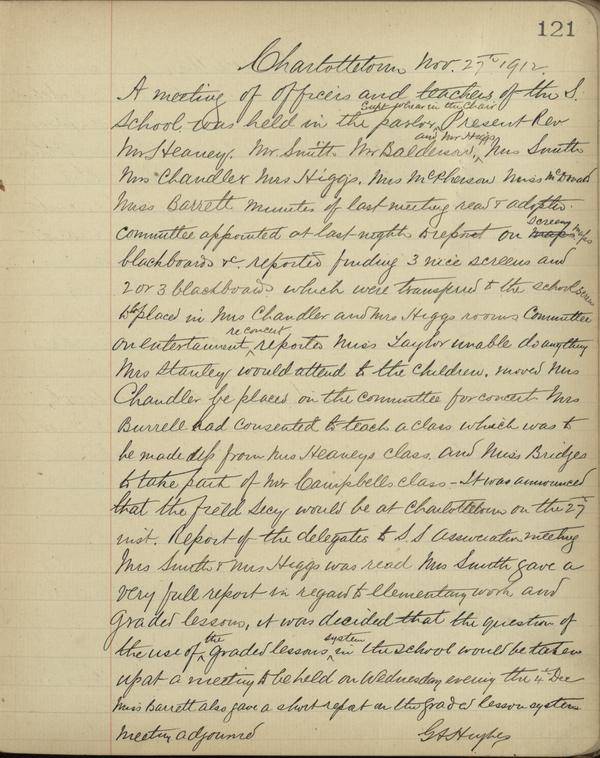 121
Charlottetown Nov. 27th 1912.
A meeting of officers and teachers of the S.
Supt Johnson in the Chair
School was held in the parlor, Present Rev
and Mr Higgs
Mr Heaney. Mr. Smith Mr Balderson, Mrs Smith
Mrs Chandler Mrs Higgs. Mrs McPherson Miss
Miss Barrett minutes of last meeting read & adopted.
screens
committee appointed at last night to report on maps
blackboards &c. reported finding 3 nice screens and
2 or 3 blackboards which were transferred to the school
to be placed in Mrs Chandler and Mrs Higgs rooms Committee
re concert
on entertainment, reported Miss Taylor unable do anything
Mrs Stanley would attend to the children. moved Mrs
Chandler be placed on the committee for concert Mrs
Burrell had consented to teach a class which was to
be made up from Mrs Heaneys class. and Miss Bridges
to take part of Mr Campbells class - It was announced
that the field Secy would be at Charlottetown on the 27th
inst. Report of the delegates to S.S association meeting
Mrs Smith & Mrs Higgs was read Mrs Smith gave a
very full report in regard to Elementary work and
Graded lessons, it was decided that the question of
the system
the use of graded lessons in the school would be taken
up at a meeting to be held on Wednesday evening the 4th Dec
Miss Barrett also gave a short report on the graded lesson system
Meeting adjourned G A Hughes